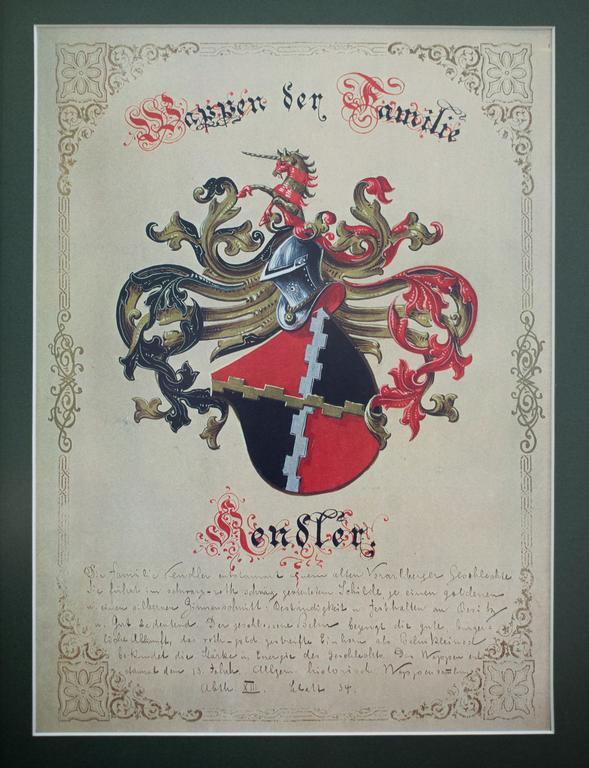 Wappen der Familie
Kendler.
Die Familie Kendler entstammt einem alten Vorarlberger Geschlechte
Sie führt im schwarz-roth geviertetem Schilde je einen goldenen
u. einen silbernen Zinnenschnitt: Beständigkeit u. Festhalten an Besitz
u. Gut bedeutend. Der geschlossene Helm bezeugt die gute bürger-
liche Abkunft, das roth-gold gestreifte Einhorn als Helmkleinod
bekundet die Stärke u. Energie des Geschlechts. Das Wappen ent-
stammt dem 15. Jahrh. Allgem. historisch. Wappensammlung
Abth. XIII. Blatt 34.